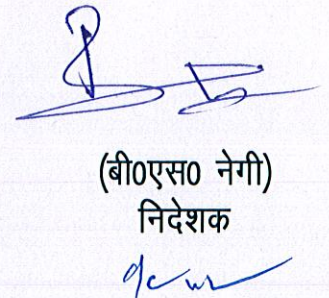 (बी0एस0 नेगी)
निदेशक